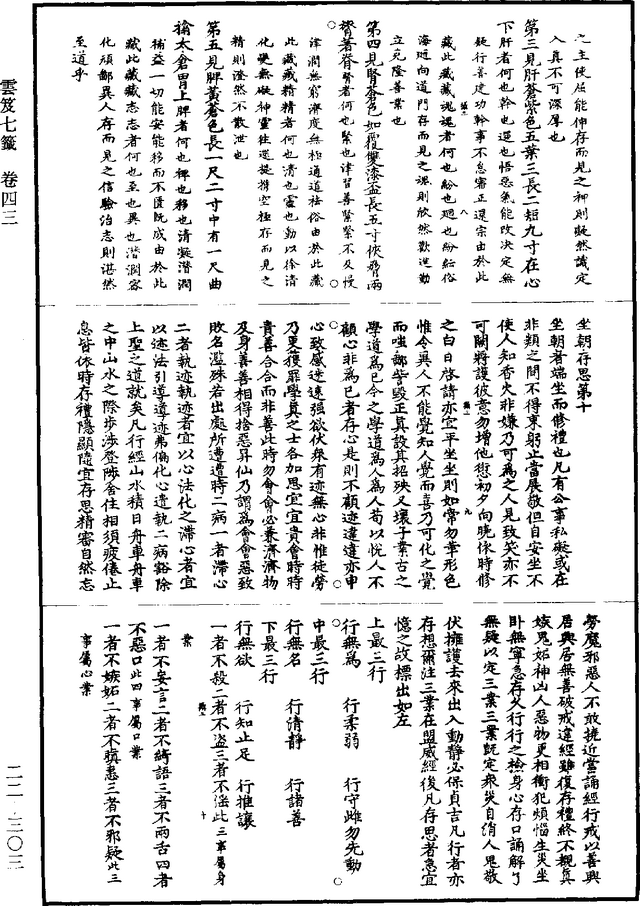 之主使屈能伸存而見之神則凝然識定
入真不可深厚也
第三見肝蒼紫色五葉三長二短九寸在心
下肝者何也幹也還也悟惡氣能改決定無
疑行善建功幹事不怠審正還宗由於此
藏此藏藏魂魂者何也紛也迴也紛紜俗
海迴向道門存而見之魂則欣然歡進勤
立克隆善業也
第四見腎蒼色如覆雙漆盃長五寸俠脊兩
膂著脊腎者何也緊也津習善緊緊不及慢
津潤無窮濟度無極通道祛俗由於此藏
此藏藏精精者何也清也靈也動以徐清
化變無礙神靈往還提携空極存而見之
精則澄然不散泄也
第五見脾黃蒼色長一尺二寸中有一尺曲
揜太倉胃上脾者何也裨也移也清凝潛潤
裨益一切能安能移而不匱既成由於此
藏此藏藏志志者何也至也異也潛潤密
化頑鄙異人存而見之信驗治志則湛然
至道乎
坐朝存思第十
坐朝者端坐而修禮也凡有公事私礙或在
非類之間不得東躬止當展敬但自安坐不
使人知香火非嫌乃可為之人見致笑亦不
可闕將護彼意勿增他愆初夕向曉依時修
之白日啓請亦宜平坐坐則如常勿華形色
惟令異人不能覺知人覺而喜乃可化之覺
而嗤鄙訾毀正真設其招殃又壞子業古之
學道為已今之學道為人為人苟以悅人不
顧心非為已者存心是則不顧迹違違亦申
心致感迷迷强欲伏桀有迹無心非惟徒勞
乃更獲罪學真之士各加思宜宜貴會時時
貴善合合而非善此時勿會會必兼濟濟物
及身善善相得捨惡昇仙乃謂為會會惡致
敗名濫殊若出處所遭遭時二病一者滯心
二者執迹執迹者宜以心法化之滯心者宜
以迹法引導遺迹弗偏化心遺執二病豁除
上聖之道就矣凡行經山水積日舟車舟車
之中山水之際步涉登陟舍住相須疲倦止
息皆依時存禮隱顯隨宜存思精審自然忘
勞魔邪惡人不敢撓近當誦經行戒以善興
居興居無善破戒違經雖復存禮終不覩真
嫉鬼妬神凶人惡物更相衝犯煩惱生災坐
臥無寧急存火行行之檢身心存口誦解了
無疑以定三業三業既定衆災自銷人鬼敬
伏擁護去來出入動靜必保貞吉凡行者亦
存想彌注三業在盟威經後凡存思者急宜
憶之故標出如左
上最三行
行無為　行柔弱　行守雌勿先動
中最三行
行無名　行清靜　行諸善
下最三行
行無欲　行知止足　行推讓
一者不殺二者不盜三者不淫此三事屬身
業
一者不妄言二者不綺語三者不兩舌四者
不惡口此四事屬口業
一者不嫉妬二者不瞋恚三者不邪疑此三
事屬心業
雲笈七籤　卷四三
二二－三〇三